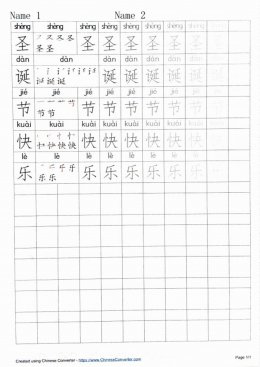 Name 1 Name 2
shèng shèng shèng shèng shèng shèng shèng
圣 圣 圣 圣 圣 圣 圣 圣 圣
dàn dàn dàn
诞 诞 诞 诞 诞 诞 诞
jié jié jié jié jié jié jié
节 节 节 节 节 节 节
kuài kuài kuài kuài kuài kuài kuài
快 快 快 快 快 快 快
lè lè lè lè lè lè lè
乐 乐 乐 乐 乐 乐 乐
Created using Chinese Converter - https://www.ChineseConverter.com Page 1/1